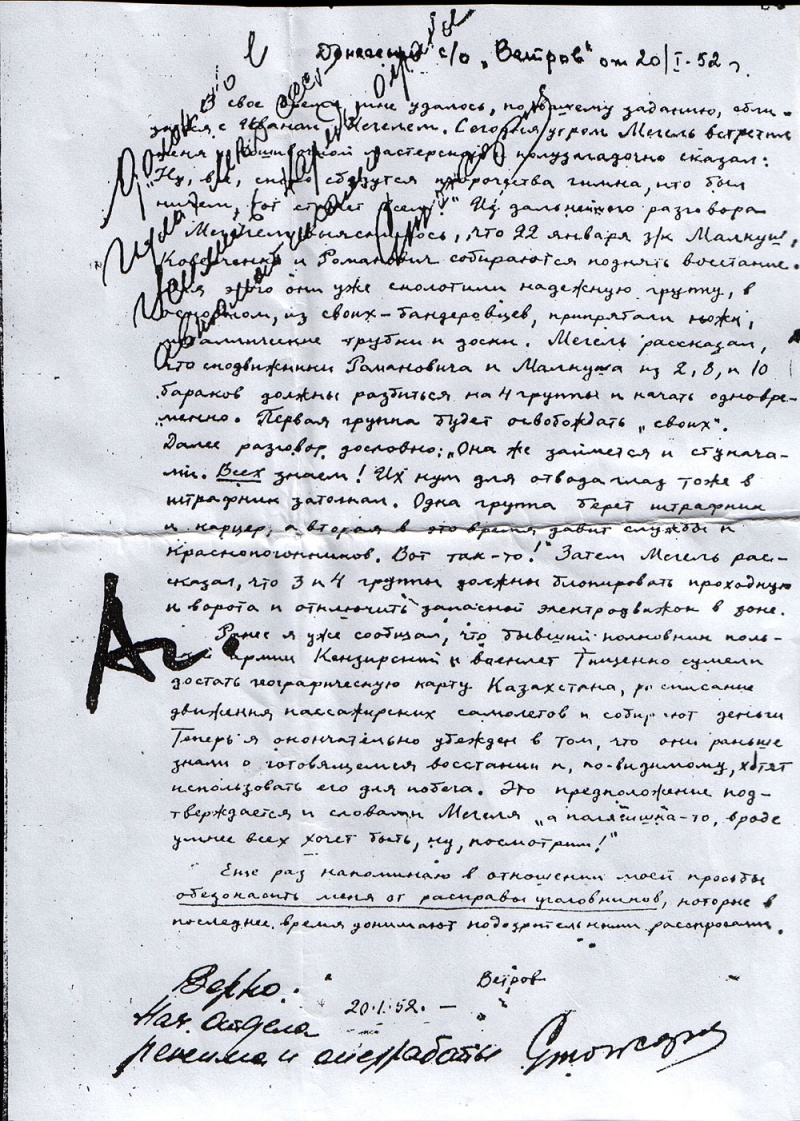 Донесение с/о „Ветров" от 20/I-52 г.
В свое время мне удалось, по вашему заданию, сбли-
зиться с Иваном Мегелем. Сегодня утром Мегель встретил
меня в мастерской и полузагадочно сказал:
"Ну, все, скоро сбудутся пророчества гимна, кто был
ничем, тот станет всем!" Из дальнейшего разговора
с Мегелем выяснилось, что 22 января з/к Малкуш,
и Романович собираются поднять восстание.
Для этого они уже сколотили надежную группу, в
основном, из своих-бандеровцев, припрятали ножи,
металлические трубки и доски. Мегель рассказал,
что сподвижники Романовича и Малкуша из 2, 8, и 10
бараков должны разбиться на 4 группы и начать одновре-
менно. Первая группа будет освобождать „своих".
Далее разговор дословно: „Она же займется и стукача-
ми. Всех знаем! Их кум для отвода глаз тоже в
штрафник затолкал. Одна группа берет штрафник
и карцер, а вторая в это время давит службы и
краснопогонников. Вот так-то!" Затем Мегель рас-
сказал, что 3 и 4 группы должны блокировать проходную
и ворота и отключить запасной электродвижок в зоне.
Ранее я уже сообщал, что бывший полковник поль-
ской армии Кензирский и военлет Тищенко сумели
достать географическую карту Казахстана, расписание
движения пассажирских самолетов и собирают деньги
Теперь я окончательно убежден в том, что они раньше
знали о готовящемся восстании и, по-видимому, хотят
использовать его для побега. Это предположение под-
тверждается и словами Мегеля „а полячишка-то, вроде
умнее всех хочет быть, ну, посмотрим!"
Еще раз напоминаю в отношении моей просьбы
обезопасить меня от расправы уголовников, которые в
последнее время донимают подозрительными расспросами.
Ветров
20.1.52. —
Верно:
Нач. отдела
режима и оперработы